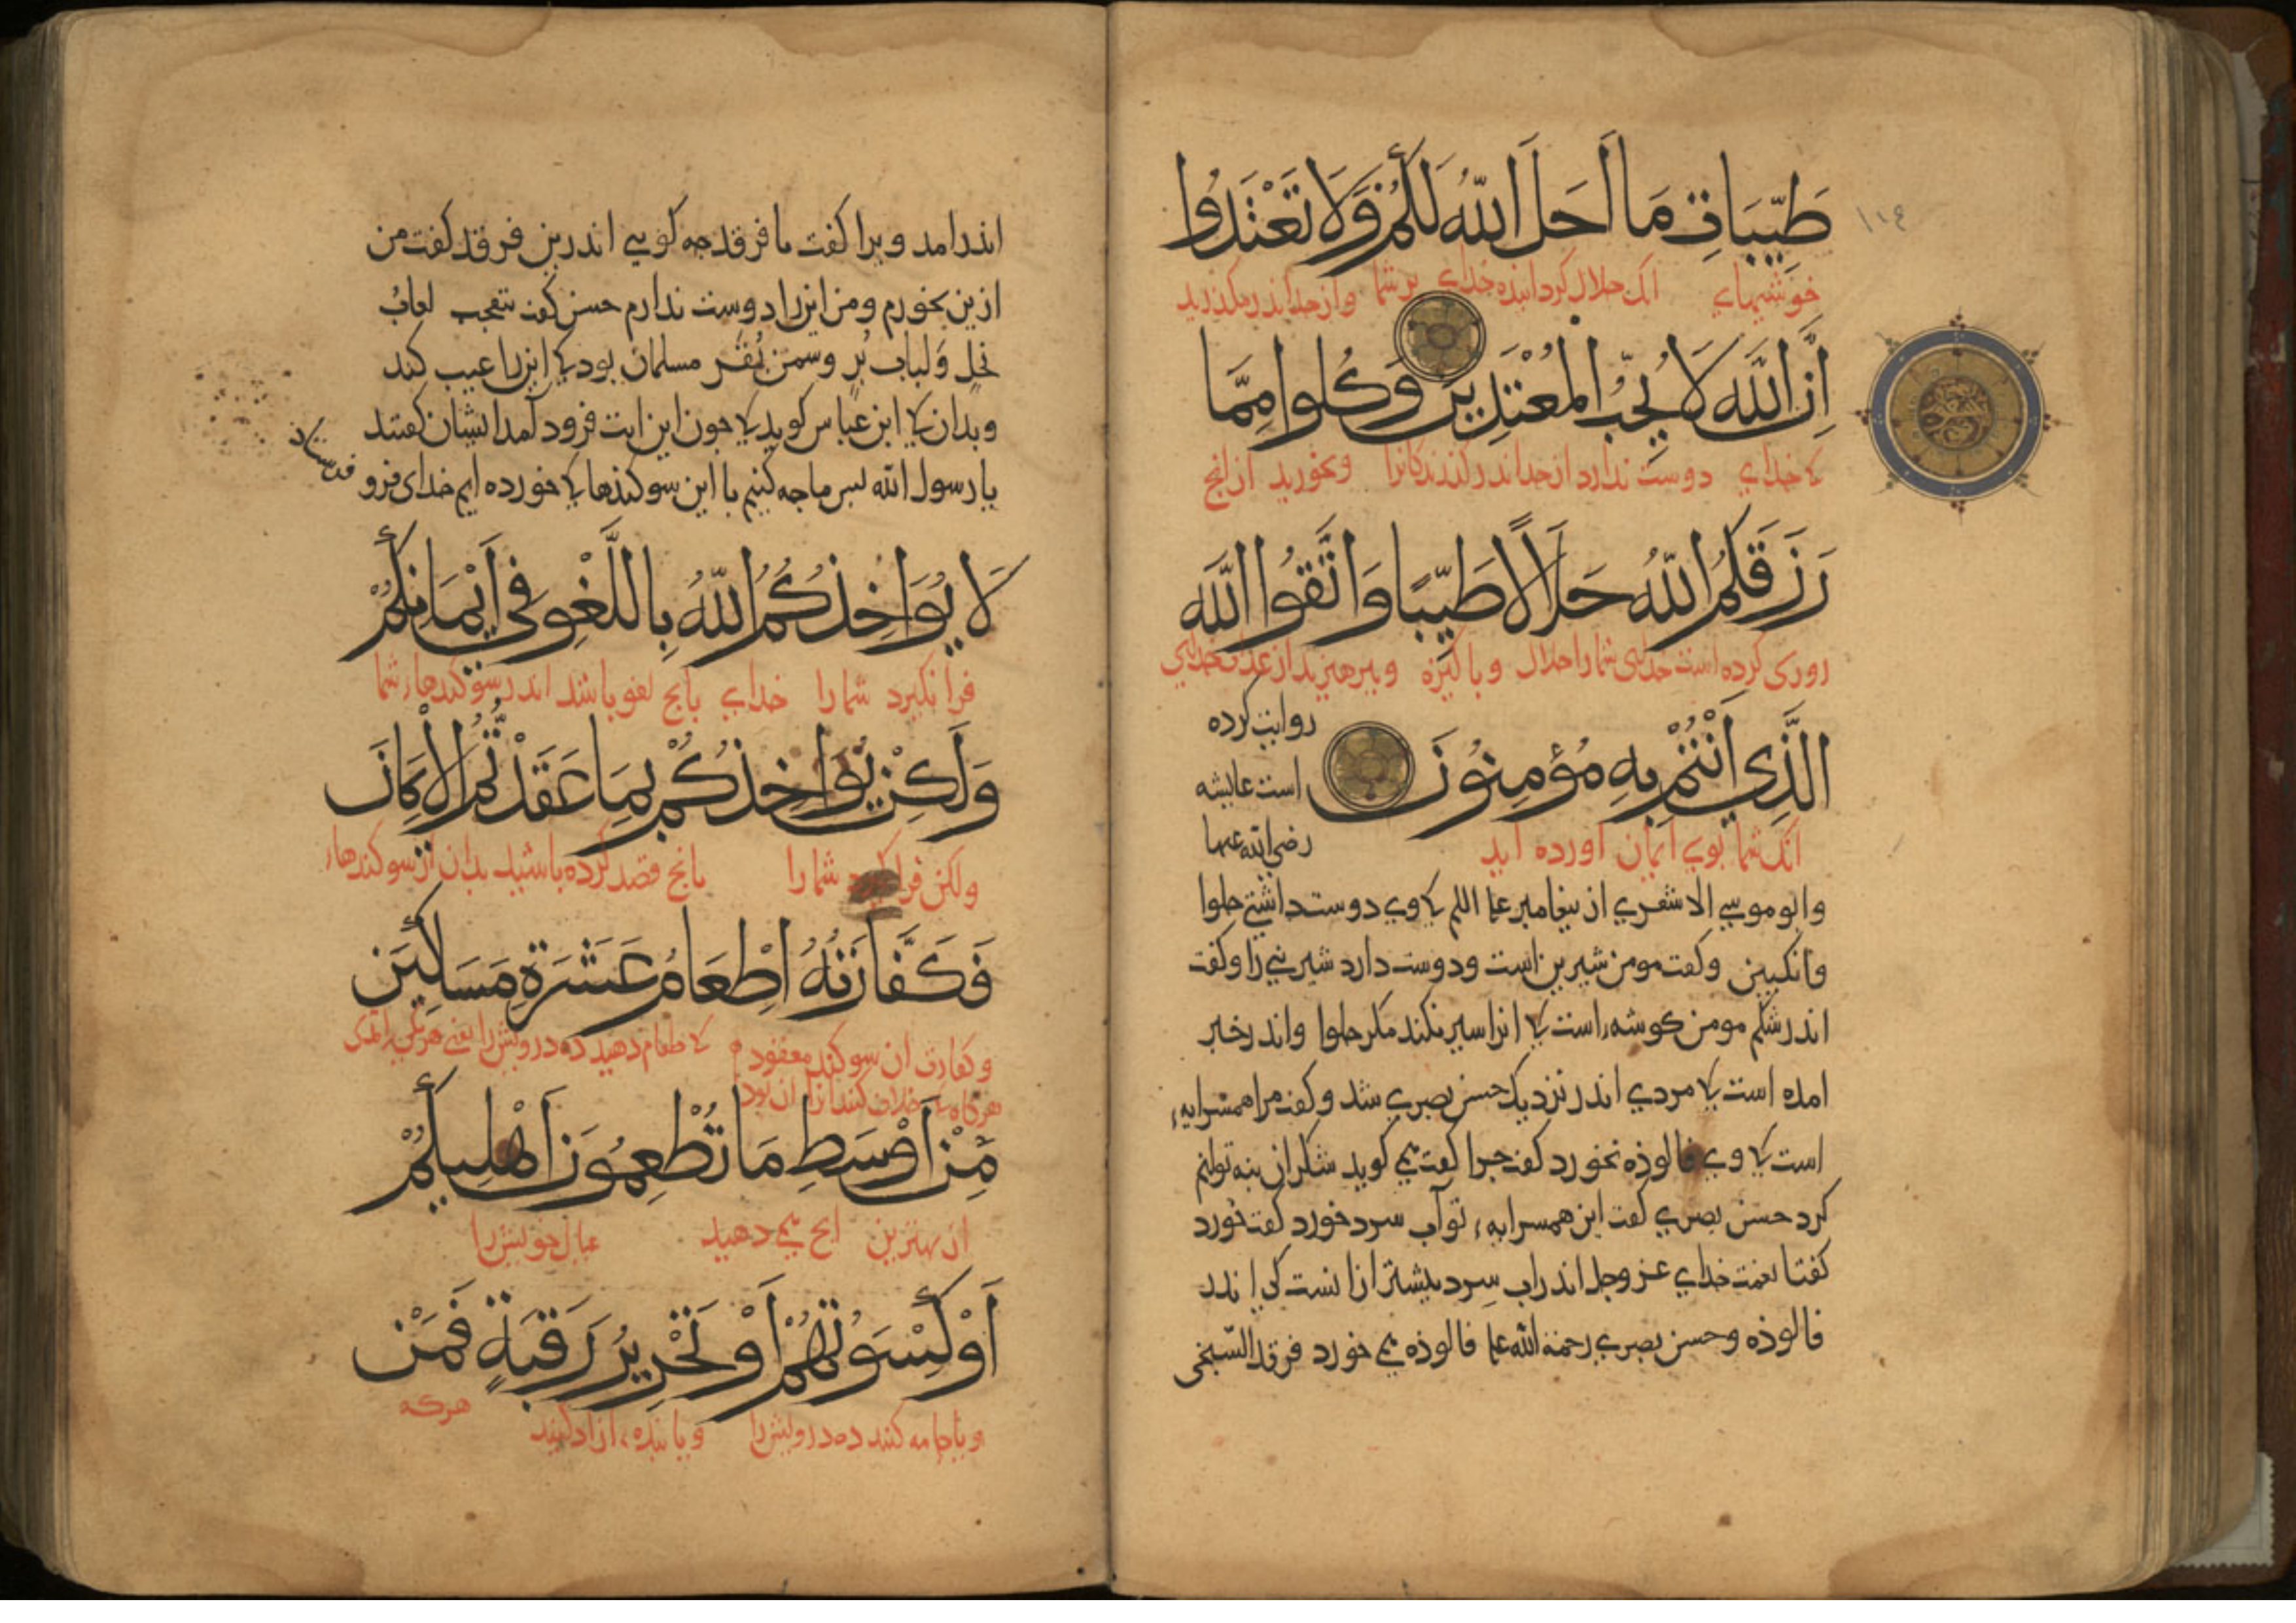 طَيِّبَاتِ مَا أَحَلَّ اللَّهُ لَكُمْ وَلَا تَعْتَدُوا
خوشیهاء آنک حلال کردانیده خدای بر شما و از حد اندر مکذرید
إِنَّ اللَّهَ لَا يُحِبُّ الْمُعْتَدِينَ وَكُلُوا مِمَّا
کخدای دوست ندارد از حد اندر کذرندکانرا و بخورید از انج
رَزَقَكُمُ اللَّهُ حَلَالًا طَيِّبًا وَاتَّقُوا اللَّهَ
روزی کرده است خدای شما را حلال و باکیزه و ببرهیزید از عذاب خدای
الَّذِي أَنْتُمْ بِهِ مُؤْمِنُونَ
روایت کرده
است عایشه
رضی الله عنها
آنک شما بوی ایمان اورده اید
وابو موسی الاشعری از بیغامبر علیه السلم کی وی دوست داشتی حلوا
وانکبین وکفت مومن شیرین است ودوست دارد شیرینی را وکفت
اندر شکم مومن کوشه است کی انرا سیر نکند مکر حلوا واندر خبر
امده است کی مردی اندر نزدیک حسن بصری شد وکفت مرا همسرایه
است کی وی فالوذه نخورد کفت جرا کفت می کوید شکر ان بنه توانم
کرد حسن بصری کفت این همسرایه تو آب سرد خورد کفت خورد
کفتا نعمت خدای عز وجل اندر اب سرد بیشتر از انست کی اندر
فالوذه وحسن بصری رحمة الله علیه فالوذه می خورد فرقد السبخی
اندر امد ویرا کفت یا فرقد جه کویی اندرین فرقد کفت من
ازین نخورم ومن اینرا دوست ندارم حسن کفت بتعجب لعابُ
نحلٍ ولباب بُرٍ وسمن بقر مسلمان بود کی اینرا عیب کند
وبدان کی ابن عباس کوید کی جون این ایت فرود آمد ایشان کفتند
یا رسول الله بس ما جه کنیم با این سوکندها کی خورده ایم خدای فرو
فرستاد
لَا يُؤَاخِذُكُمُ اللَّهُ بِاللَّغْوِ فِي أَيْمَانِكُمْ
فرا نکیرد شما را خدای بانج لغو باشد اندر سوکندهاء شما
وَلَكِنْ يُؤَاخِذُكُمْ بِمَا عَقَدْتُمُ الْأَيْمَانَ
ولکن فرا شما را بانج قصد کرده باشید بدان از سوکندهاء
فَكَفَّارَتُهُ إِطْعَامُ عَشَرَةِ مَسَاكِينَ
وکفارت ان سوکند معقود کی طعام دهید ده درویش را یعنی هر یکی را
هرکاه کی خلاف کنند انرا ان بود
مِنْ أَوْسَطِ مَا تُطْعِمُونَ أَهْلِيكُمْ
از بهترین انج می دهید عیال خویش را
أَوْ كِسْوَتُهُمْ أَوْ تَحْرِيرُ رَقَبَةٍ فَمَنْ
ویا جامه کنند ده درویش را ویا بنده ازاد کنید هرکه